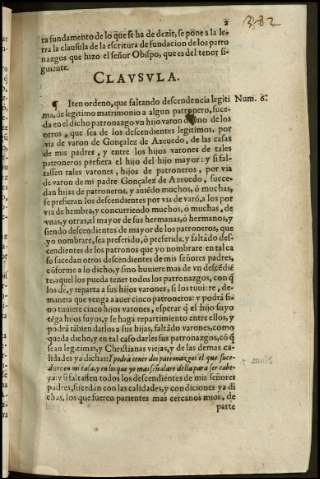 2
382
ra fundamento de lo que se ha de dezir, se pone a la le-
tra la clausula de la escritura de fundacion de los patro
nazgos que hizo el señor Obispo, que es del tenor si-
guiente.
CLAVSVLA.
¶ Iten ordeno, que faltando descendencia legiti
Num. 6.
ma, de legitimo matrimonio a algun patronero, suce-
da en el dicho patronazgo vn hijo varon de los
otros, que sea de los descendientes legitimos, por
via de varon de Gonçalez de Azeuedo, de las casas
de mi padre, y entre los hijos varones de tales
patroneros prefiera el hijo del mayor: y si fal-
tassen tales varones, hijos de patroneros, por via
de varon de mi padre Gonçalez de Azeuedo, succe-
dan hijas de patroneros, y auiẽdo muchos, ò muchas,
se prefieran los descendientes por via de varõ, a los por
via de hembra, y concurriendo muchos, ò muchas, de
vnas, y otras, el mayor de sus hermanas, ò hermanos, y
siendo descendientes de mayor de los patroneros, que
yo nombrare, sea preferido, ò preferida, y faltãdo des-
cendientes de los patronos que yo nombrare en tal ca
so sucedan otros descendientes de mis señores padres,
cõforme a lo dicho, y sino huuiere mas de vn descẽdiẽ
te, aquel los pueda tener todos los patronazgos, con q̃
los dè, y reparta a sus hijos varones, si los tuuiere, de-
manera que venga a auer cinco patroneros: y podrà si
no tuuiere cinco hijos varones, esperar q̃ el hijo suyo
tẽga hijos suyos, y se haga repartimiento entre ellos, y
podrà tãbien darlos a sus hijas, faltãdo varones, como
queda dicho, y en tal caso darles sus patronazgos, cõ q̃
sean legitimas, y Christianas viejas, y de las demas ca-
lidades ya dichas: I podrà tener dos patronazgos el que suce-
diere en mi casa, y en los que yo mas señalare della para ser cabe-
ça: y si faltassen todos los descendientes de mis señores
padres, sucedan con las calidades, y condiciones ya di
chas, los que fueren parientes mas cercanos mios, de
parte